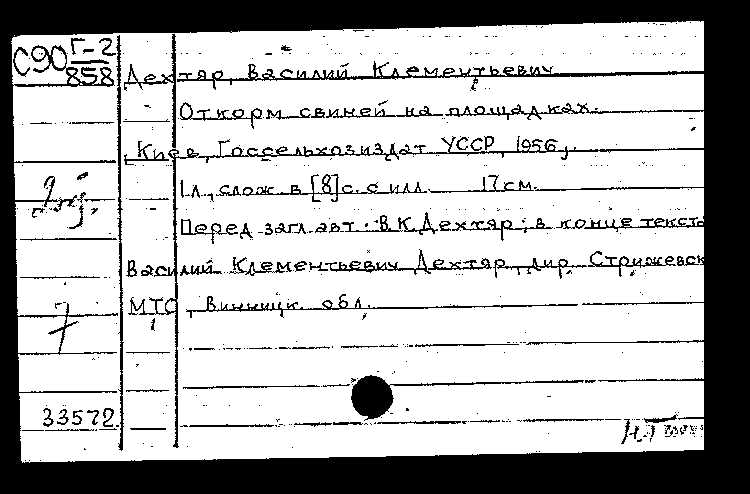 С90 Г-2
858
Дехтяр, Василий Клементьевич
Откорм свиней на площадках.
Киев, Госсельхозиздат УССР, 1956,
1 л., слож. в [8] с. с илл. 17 см.
Перед загл. авт.: В.К. Дехтяр; в конце текста
Василий Клементьевич Дехтяр, дир. Стрижевск
МТС, Винницк. обл.
7
33572